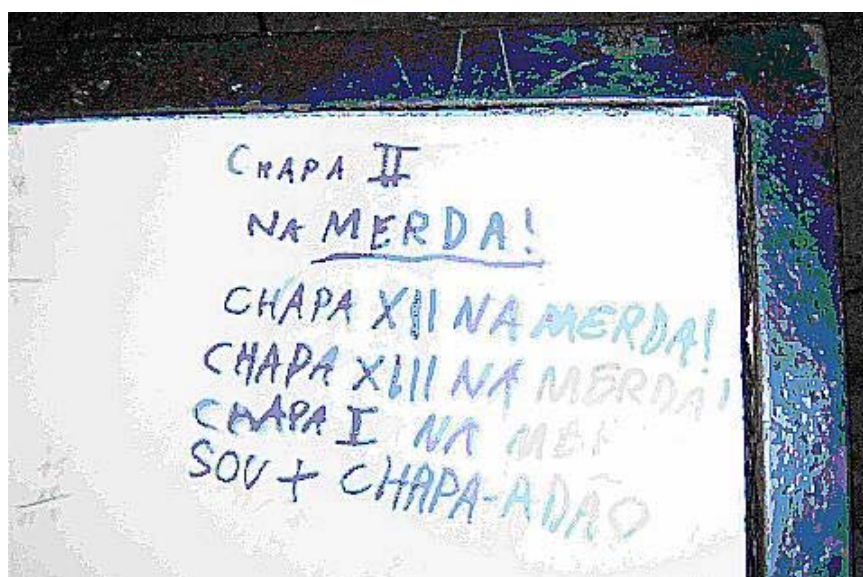 CHAPA II
NA MERDA!
CHAPA XII NA MERDA!
CHAPA XIII NA MERDA!
CHAPA I NA
SOU + CHAPA-ADÃO